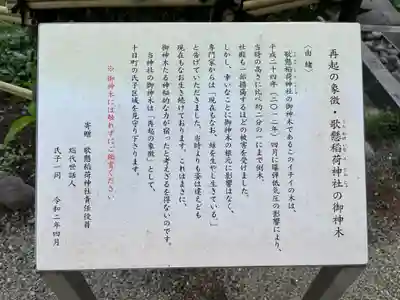 再起の象徴・歌懸稲荷神社の御神木
〈由緒〉
歌懸稲荷神社の御神木であるこのイチイの木は、
平成二十四年(二〇一二年)四月に爆弾低気圧の影響により、
当時の高さに比べ約二分の一にまで倒木、
社殿も一部損傷するほどの被害を受けました。
しかし、幸いなことに御神木の根元に影響はなく、
専門家からは「現在もなお、雄を生やし生きている。」
と告げていただきました。当時よりも姿は違えども
現在もなお生き続けております。これはまさに、
御神木たる神秘的な力が宿ったと考えざるを得ないのです。
当神社の御神木は「再起の象徴」として、
十日町の氏子区域を見守り下さります。
※御神木には触れずにご鑑賞ください
寄贈 歌懸稲荷神社責任役員
総代世話人
氏子一同 令和二年四月